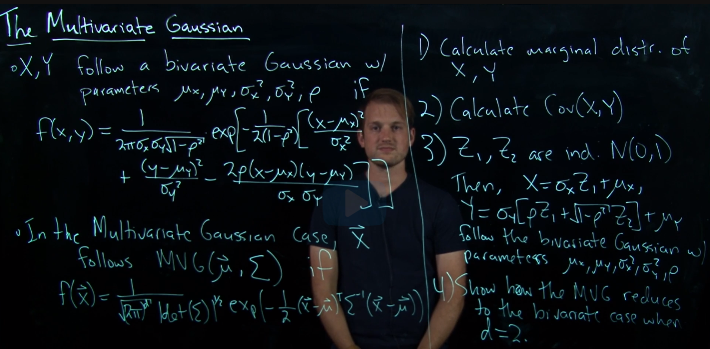 The Multivariate Gaussian
• X, Y follow a bivariate Gaussian w/
parameters μx, μy, σx², σy², ρ if
f(x,y) = 1/(2πσxσy√(1-ρ²)) exp[-1/(2(1-ρ²)) [(x-μx)²/σx²
+ (y-μy)²/σy² - 2ρ(x-μx)(y-μy)/(σx σy)]]
• In the Multivariate Gaussian case, x⃗
follows MVG(μ⃗, Σ) if
f(x⃗) = 1/(√(2π)ᵈ |det(Σ)|^½) exp(-½(x⃗-μ⃗)ᵀΣ⁻¹(x⃗-μ⃗))
1) Calculate marginal distr. of
X, Y
2) Calculate Cov(X,Y)
3) Z₁, Z₂ are ind. N(0,1)
Then, X=σxZ₁+μx,
Y=σy[ρZ₁+√(1-ρ²)Z₂]+μy
follow the bivariate Gaussian w/
parameters μx, μy, σx², σy², ρ
4) Show how the MVG reduces
to the bivariate case when
d=2.